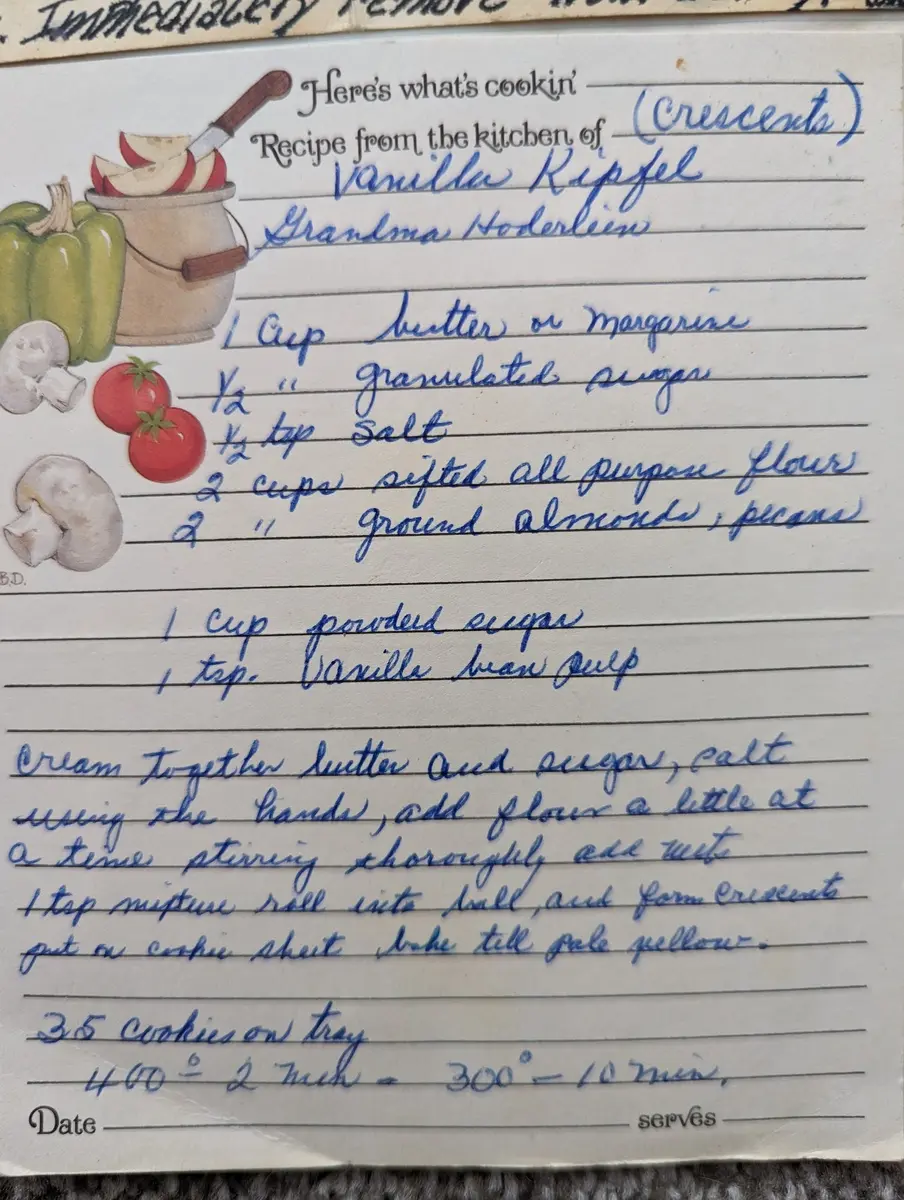 . Immediately remove from
Here's what's cookin'
Recipe from the kitchen of (Crescents)
Vanilla Kipfel
Grandma Hoderlein
1 Cup butter or Margarine
1/2 " granulated sugar
1/2 tsp Salt
2 cups sifted all purpose flour
2 " ground almonds, pecans
B.D.
1 Cup powded sugar
1 tsp. Vanilla bean pulp
Cream together butter and sugar, salt
using the hands, add flour a little at
a time stirring thoroughly add nuts
1 tsp mixture roll into ball, and form Crescents
put on cookie sheet bake till pale yellow.
35 cookies on tray
400° - 2 min - 300° - 10 min.
Date serves